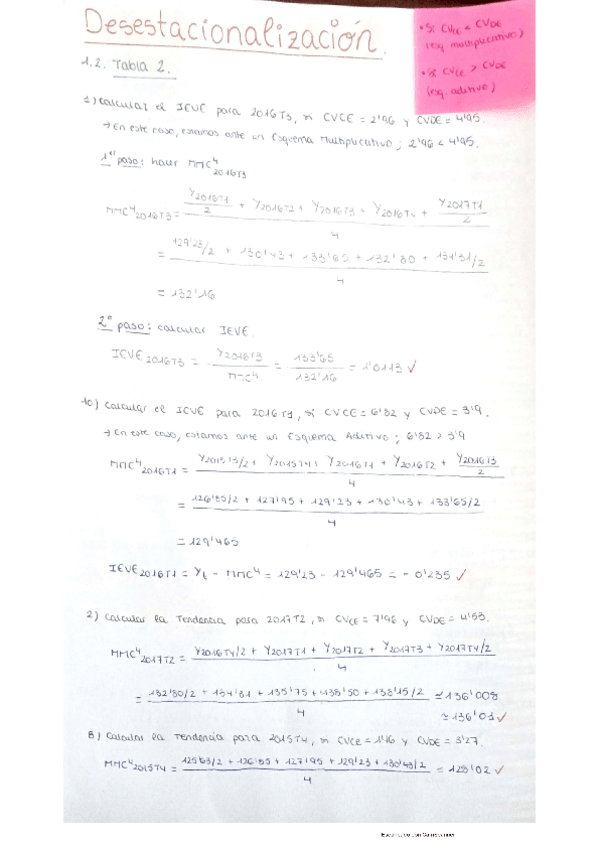 Desestacionalización.
• Si CVCE < CVDE
(esq. multiplicativo)
• Si CVCE > CVDE
(esq. aditivo)
1.2. Tabla 2.
1) Calcular el IEVE para 2016T3, si CVCE = 2'96 y CVDE = 4'95.
→ En este caso, estamos ante un Esquema Multiplicativo; 2'96 < 4'95.
1er paso: hacer MMC⁴2016T3
MMC⁴2016T3 = Y2016T1/2 + Y2016T2 + Y2016T3 + Y2016T4 + Y2017T1/2
4
= 129'23/2 + 130'43 + 133'65 + 132'80 + 134'31/2
4
= 132'16
2º paso: calcular IEVE.
IEVE2016T3 = Y2016T3 / MMC⁴ = 133'65 / 132'16 = 1'0113 ✓
10) Calcular el IEVE para 2016T1, si CVCE = 6'82 y CVDE = 3'9.
→ En este caso, estamos ante un Esquema Aditivo; 6'82 > 3'9
MMC⁴2016T1 = Y2015T3/2 + Y2015T4 + Y2016T1 + Y2016T2 + Y2016T3/2
4
= 126'85/2 + 127'95 + 129'23 + 130'43 + 133'65/2
4
= 129'465
IEVE2016T1 = Yt - MMC⁴ = 129'23 - 129'465 = - 0'235 ✓
2) Calcular la Tendencia para 2017T2, si CVCE = 7'96 y CVDE = 4'53.
MMC⁴2017T2 = Y2016T4/2 + Y2017T1 + Y2017T2 + Y2017T3 + Y2017T4/2
4
= 132'80/2 + 134'31 + 135'75 + 138'50 + 138'15/2 ≃ 136'008
4 ≃ 136'01 ✓
8) Calcular la Tendencia para 2015T4, si CVCE = 1'46 y CVDE = 3'27.
MMC⁴2015T4 = + 126'85 + 127'95 + 129'23 + 130'43/2 = 128'02 ✓
4